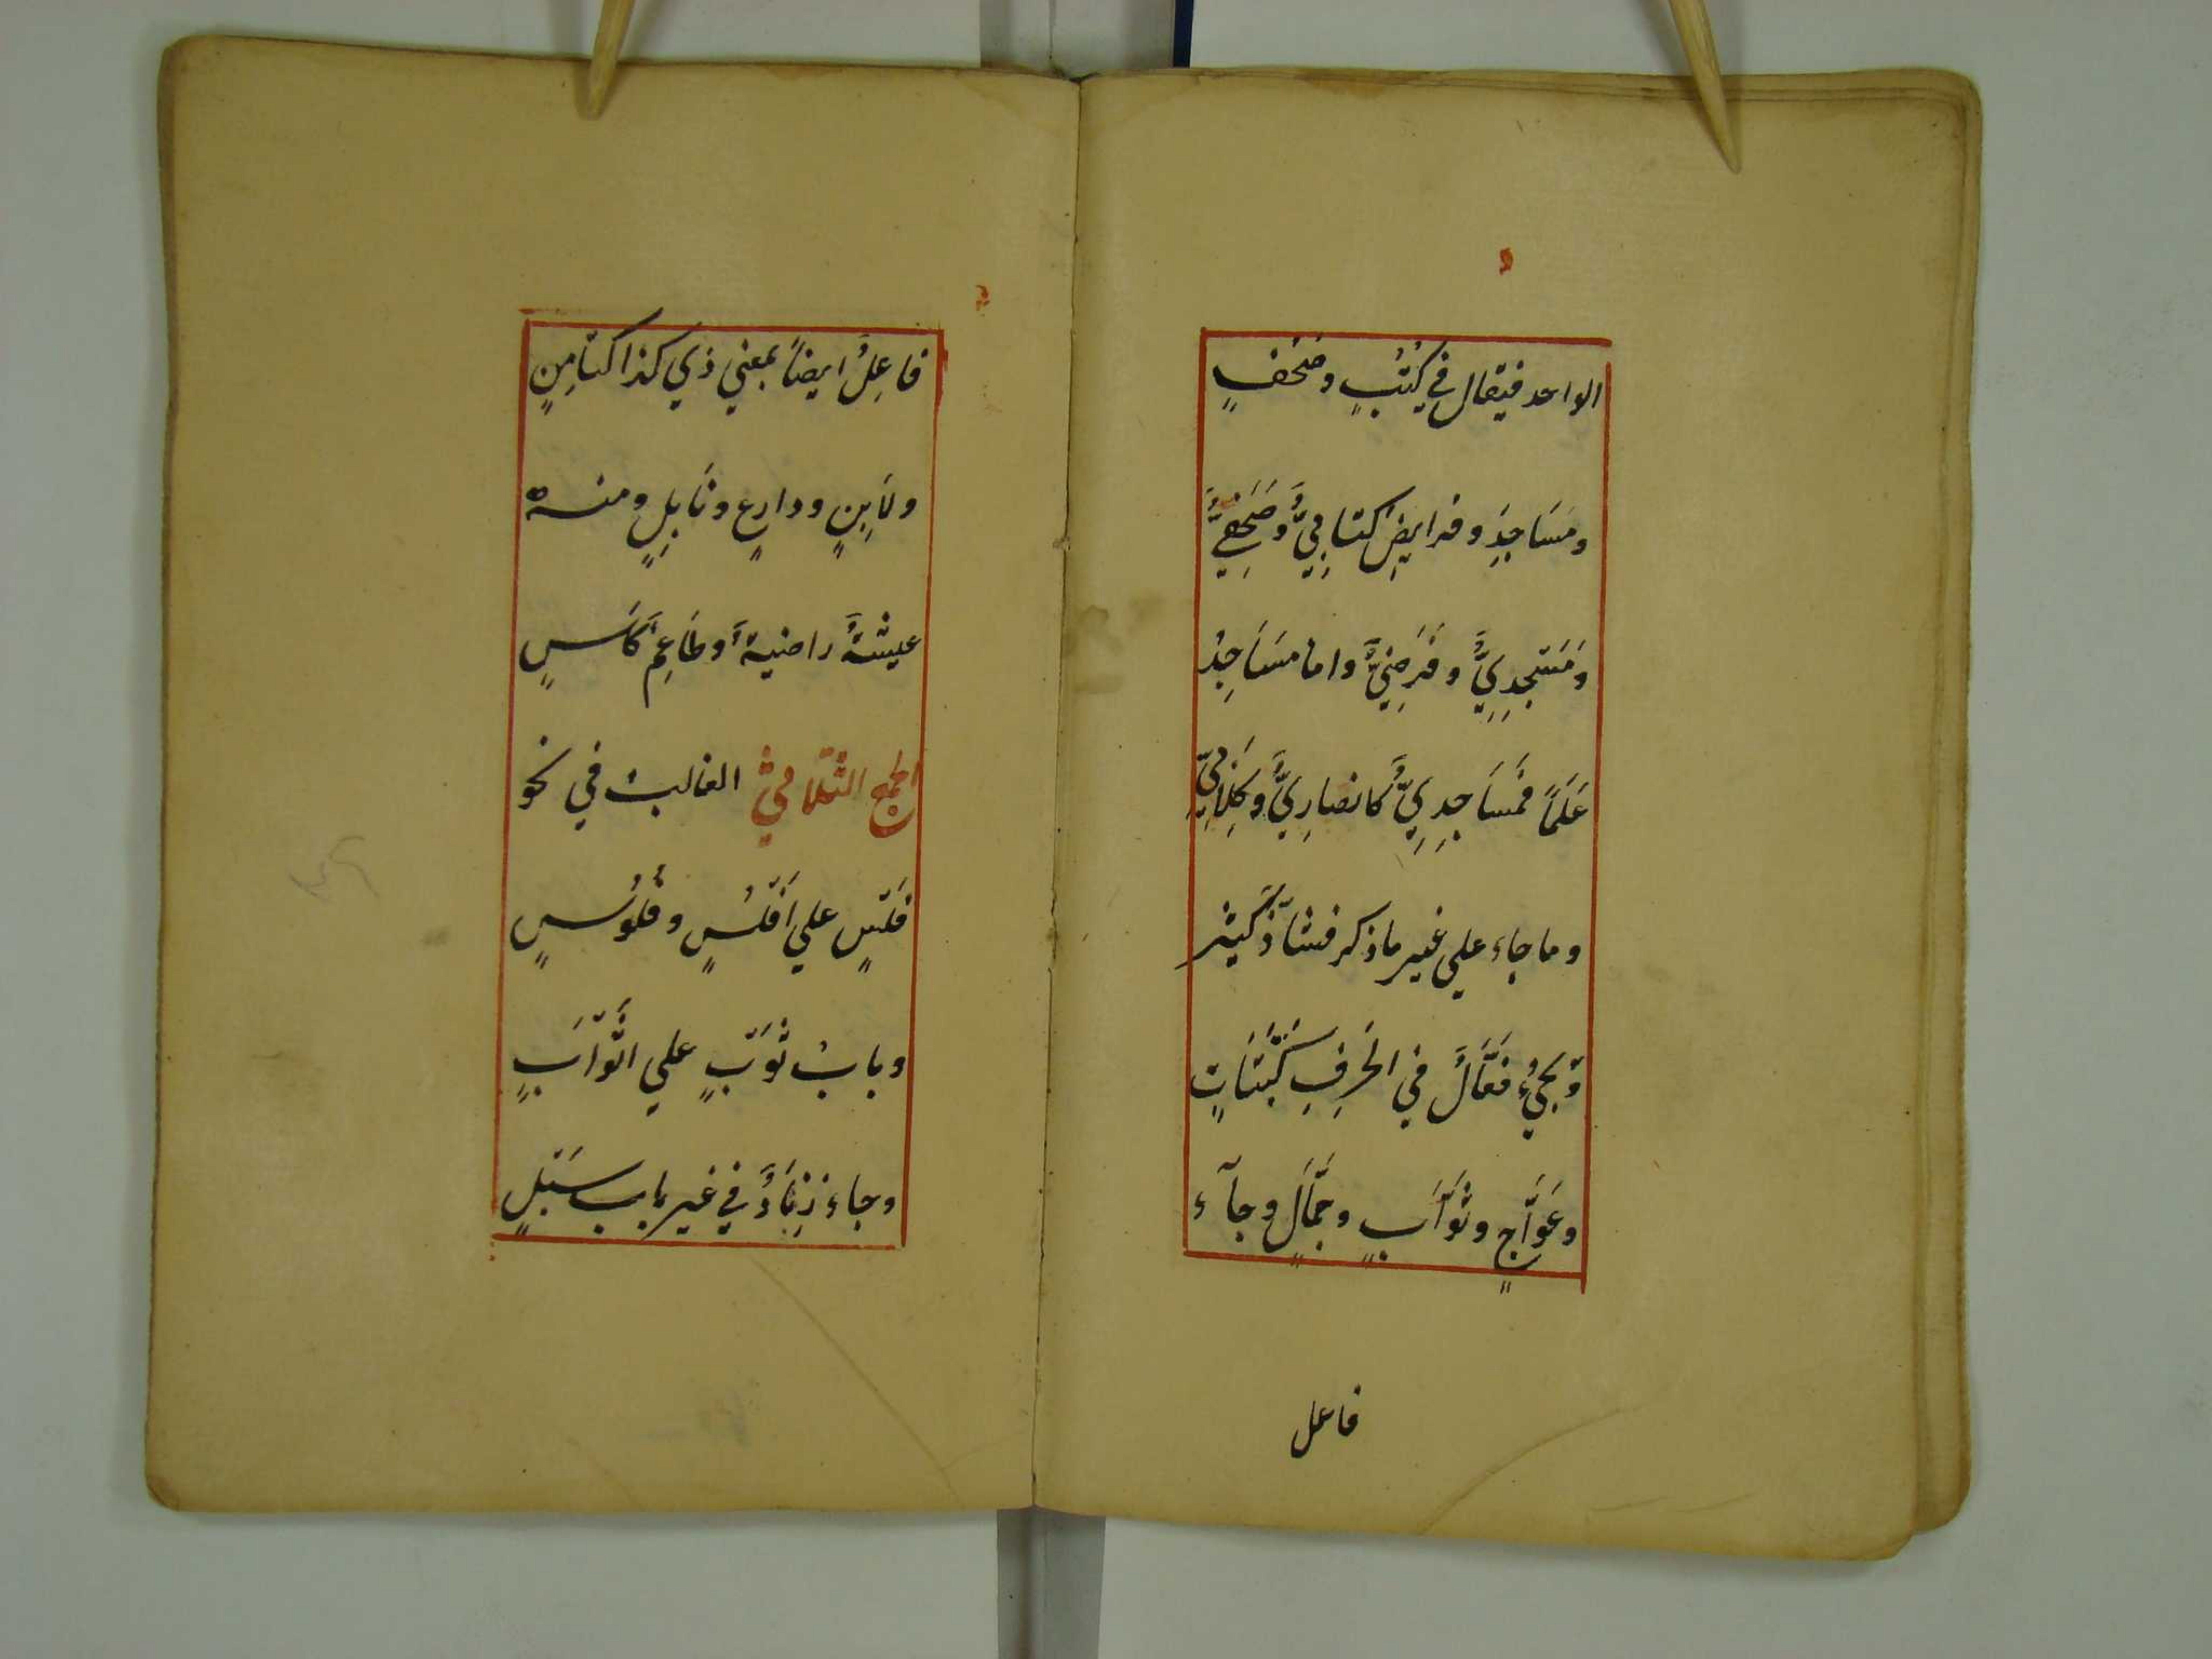 الواحد فيقال في كُتُبٍ وصُحُفٍ
ومَسَاجِدَ وفرايضَ كتابِيٌّ وصَحَفِيٌّ
ومَسْجِدِيٌّ وفَرَضِيٌّ واما مسَاجِدُ
عَلَماً فمَسَاجِدِيٌّ كانصارِيٌّ وكِلَابِيٌّ
وما جاء علي غير ما ذكر فشاذّ كثير
وّيجيُ فعَّالٌ في الحَرِفِ كَبَتَّاتٍ
وعَوَّاجٍ وثَوَّابٍ وجَمَّالٍ وجآء
فاعل
فاعِلٌ ايضاً بمعني ذي كذا كتامِرٍ
ولَابِنٍ ودارِعٍ ونَابِلٍ ومنه
عيشةٌ راضيةٌ وطَاعِمٌ كَاسٍ
الجمع الثلاثي الغالبُ في نحو
فَلْسٍ علي اَفْلُسٍ وفُلُوُسٍ
وبابُ ثَوْبٍ علي اثْوَابٍ
وجاء زِنَادٌ في غير باب سَيْلٍ